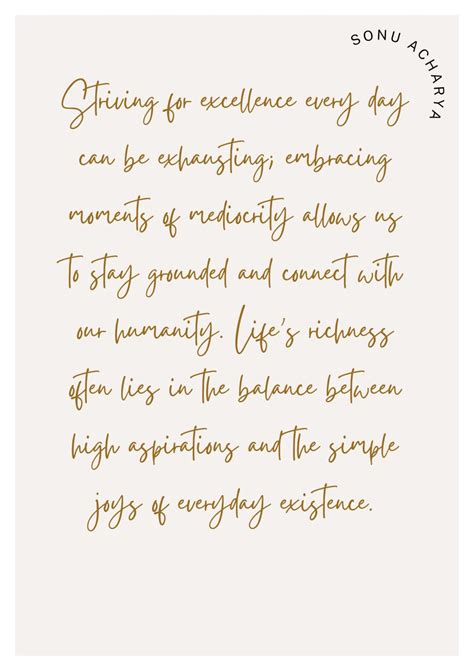 SONU ACHARYA
Striving for excellence every day
can be exhausting; embracing
moments of mediocrity allows us
to stay grounded and connect with
our humanity. Life's richness
often lies in the balance between
high aspirations and the simple
joys of everyday existence.